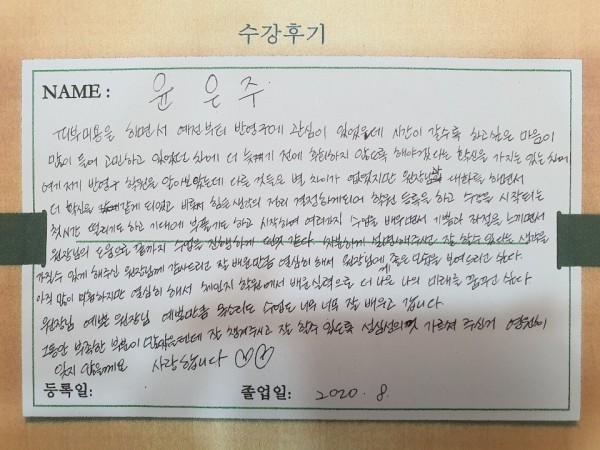 수강후기
NAME : 윤은주
피부미용을 하면서 예전부터 반영구에 관심이 있었을데 시간이 갈수록 하고싶은 마음이
많이 들어 고민하고 있었던 차에 더 늦기 전에 후회하지 않도록 해야겠다는 확신을 가지고 있는 차에
여기저기 반영구 학원을 알아보았는데 다른 것들은 별 차이가 없었지만 원장님과 대화를 하면서
더 확신을 갖게 되었고 바로 생각의 정리 결정하게되어 학원 등록을 하고 수업을 시작되는
첫시간 떨리기도 하고 기대에 부풀기도 하고 시작하여 여러가지 수업을 배우면서 기쁨과 좌절을 느끼면서
원장님의 도움으로 끝까지 수업을 진행하게 된것 같다. 차분하게 설명해주시고 잘 할수 있다는 생각을
가질수 있게 해주신 원장님께 감사드리고 잘 배운만큼 열심히 해서 원장님께 좋은 모습을 보여드리고 싶다.
아직 많이 미흡하지만 열심히 해서 학원에서 배운 실력으로 더 나은 나의 미래를 꿈꾸고 싶다
원장님 예쁜 원장님 예쁜만큼 목소리도 수업도 너무 너무 잘 배우고 갑니다
그동안 부족한 부분이 많았을텐데 잘 챙겨주시고 잘 할수 있도록 성심성의껏 가르쳐 주신거 영원히
잊지 않을께요 사랑합니다 ♡♡
등록일: 졸업일: 2020. 8.